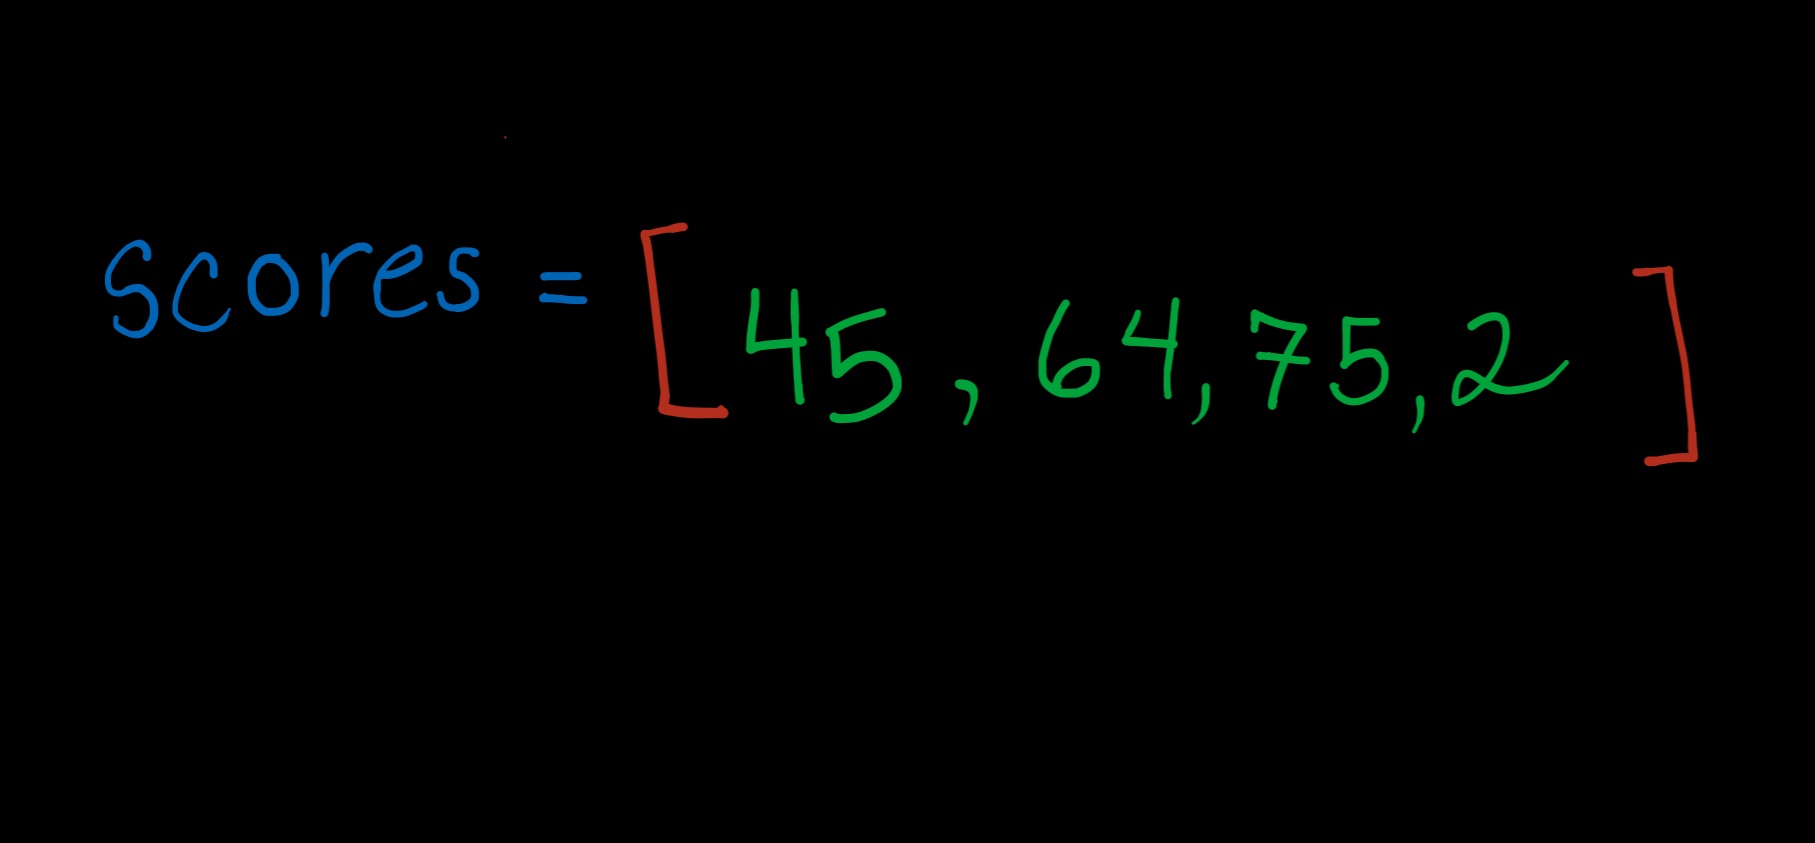 scores = [45, 64, 75, 2]